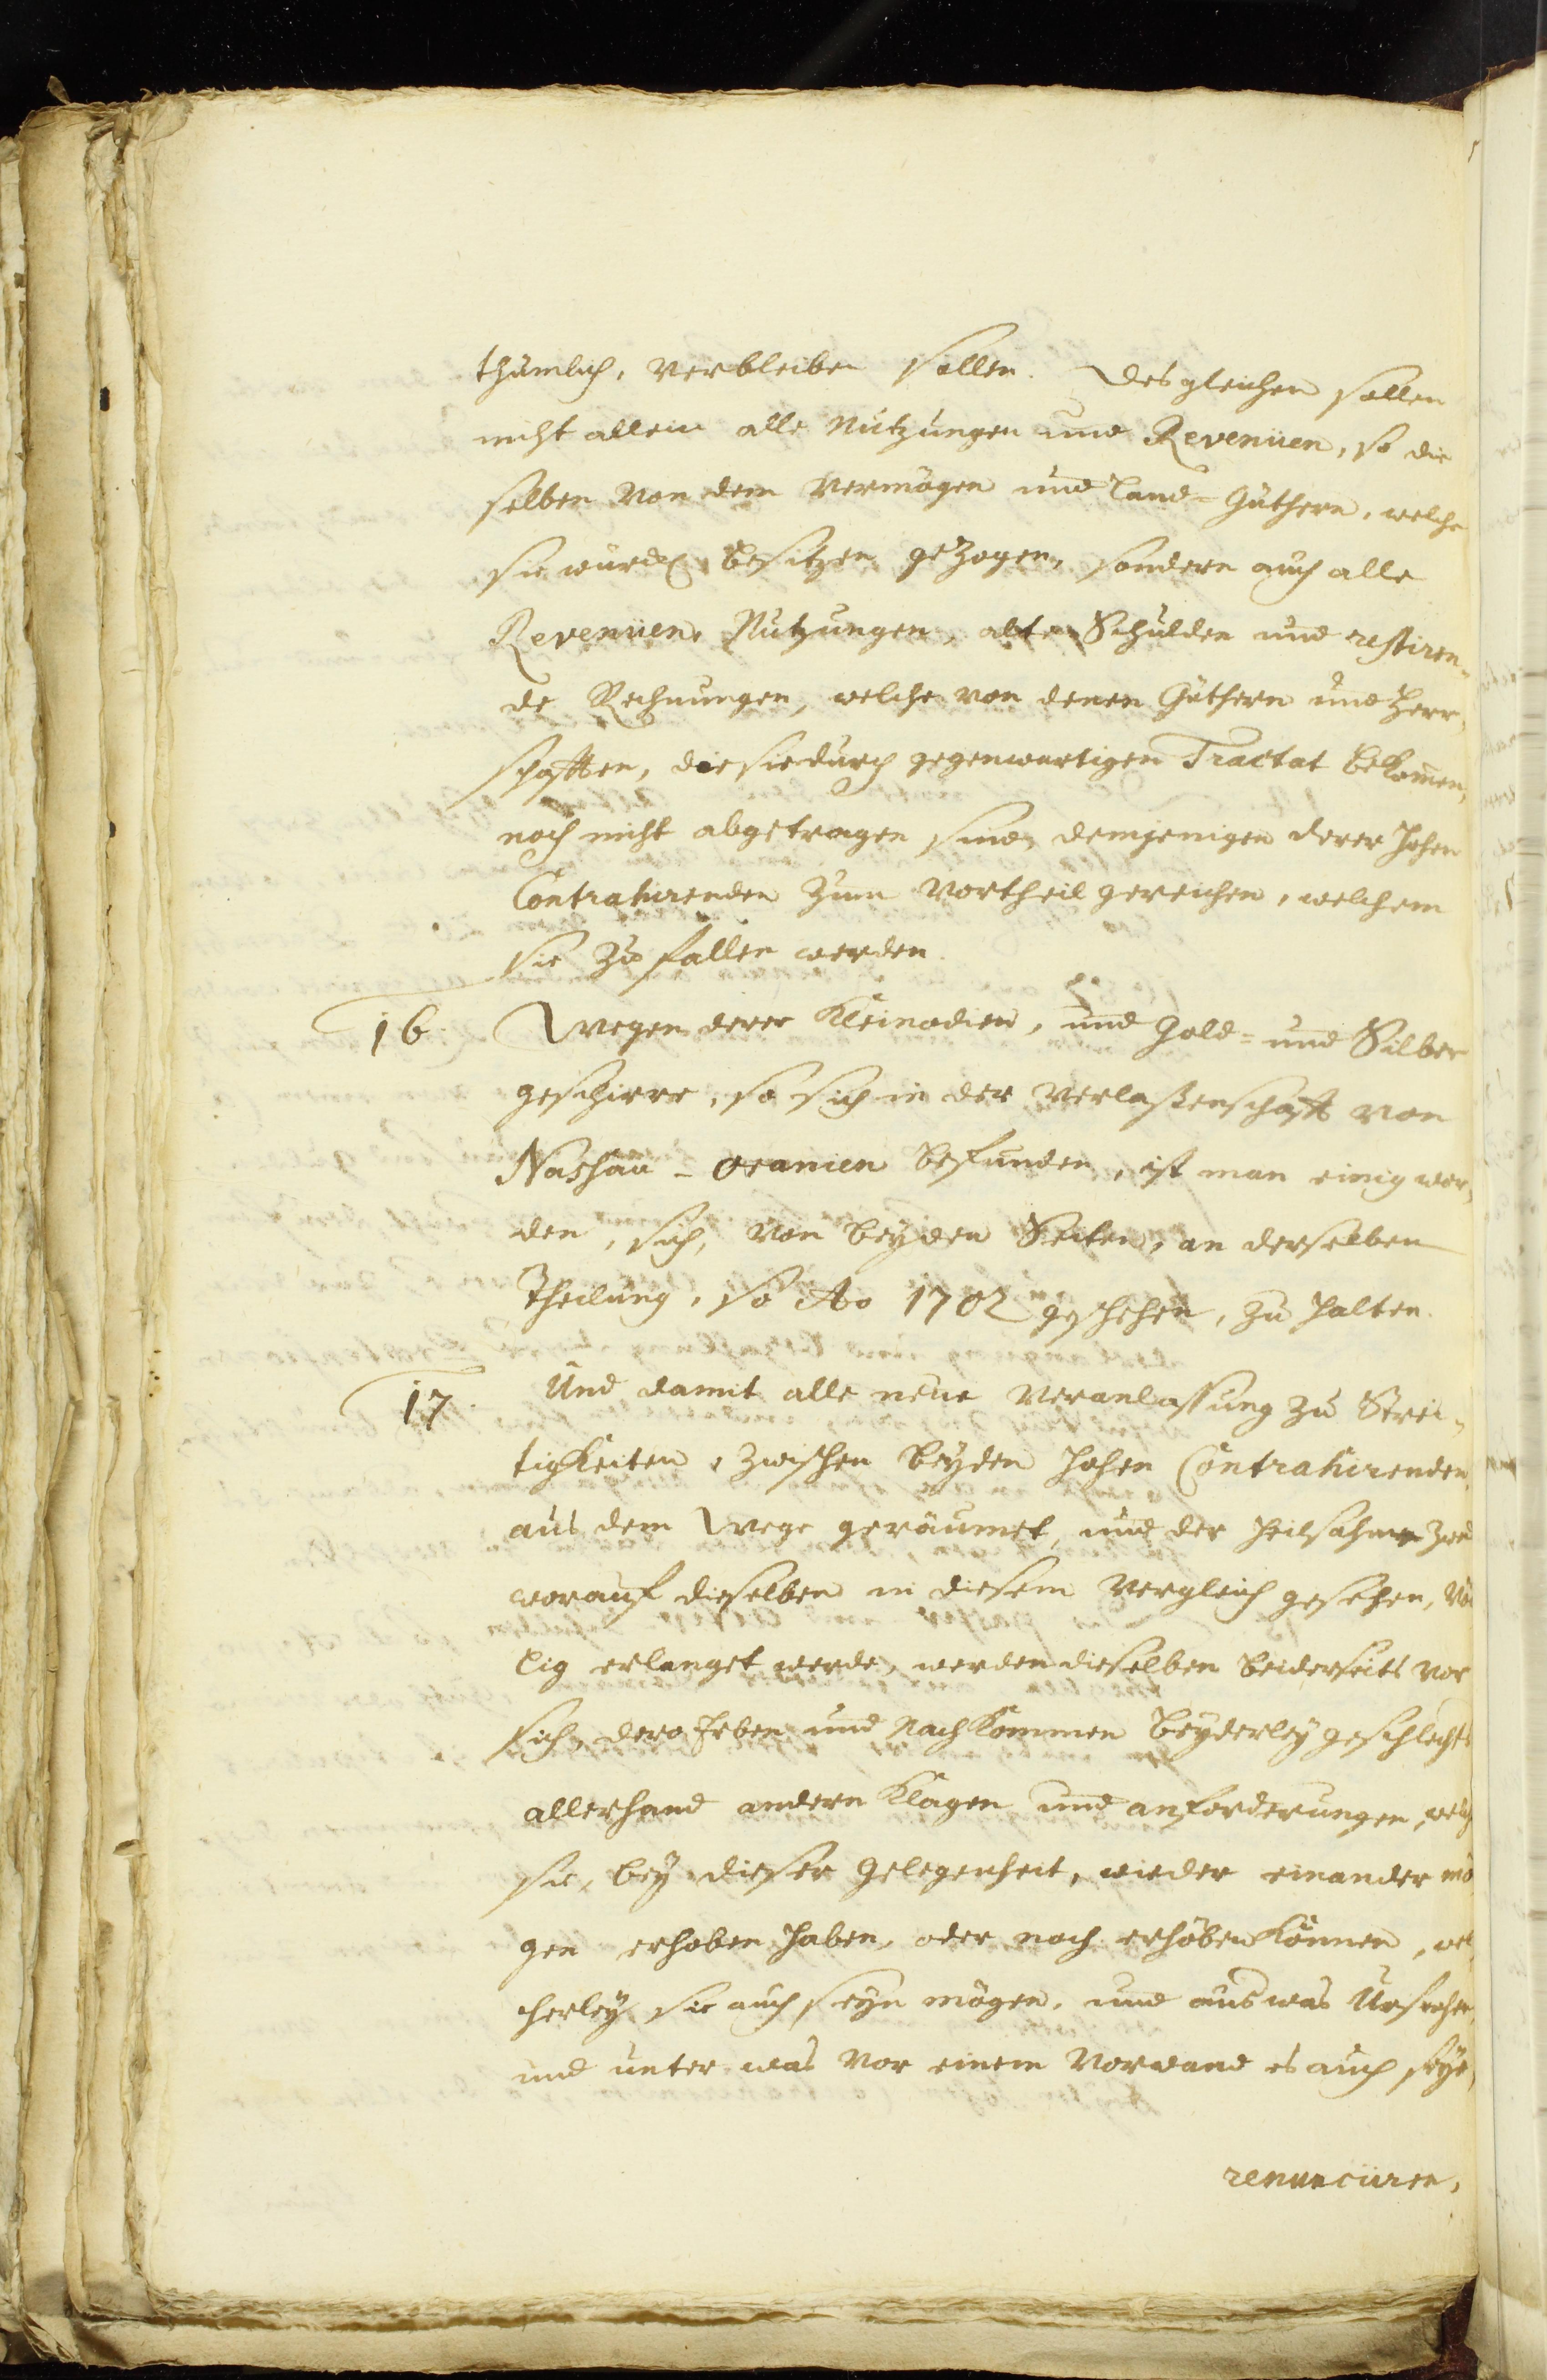 thumlich, verbleiben sollen. Desgleichen sollen
nicht allein alle Nutzungen und Revenüen, so die
selben von dem Vermögen und Land-Güthern, welche
sie würckl. besitzen gezogen, sondern auch alle
Revenüen, Nutzungen, alte Schulden und restiren-
de Rechnungen, welche von denen Güthern und Herr-
schafften, die sie durch gegenwärtigen Tractat bekomen,
noch nicht abgetragen sind, demjenigen derer hohen
Contrahirenden zum Vortheil gereichen, welchem
sie zu fallen werden.
16. Wegen derer Kleinodien, und Gold- und Silber
geschirr, so sich in der Verlaßenschafft von
Nassau-Oranien befunden, ist man einig wor-
den, sich, von beyden Seiten, an derselben
Theilung, so Ao 1702 geschehen, zu halten.
17. Und damit alle neue Veranlassung zu Strei-
tigkeiten, zwischen beyden hohen Contrahirenden
aus dem Wege geräumet, und der heilsahme Zwe
worauf dieselben in diesem Vergleich gesehen, Vö
lig erlanget werde, werden dieselben beiderseits vor
sich, dero Erben und Nachkommen beyderley geschlechts
allerhand andern Klagen und anforderungen, welch
sie, bey dieser Gelegenheit, wieder einander mö
gen erhoben haben, oder noch erhöben können, wel
cherley sie auch seyn mögen, und aus was Ursachen,
und unter was vor einem Vorwand es auch seye,
renunciiren,